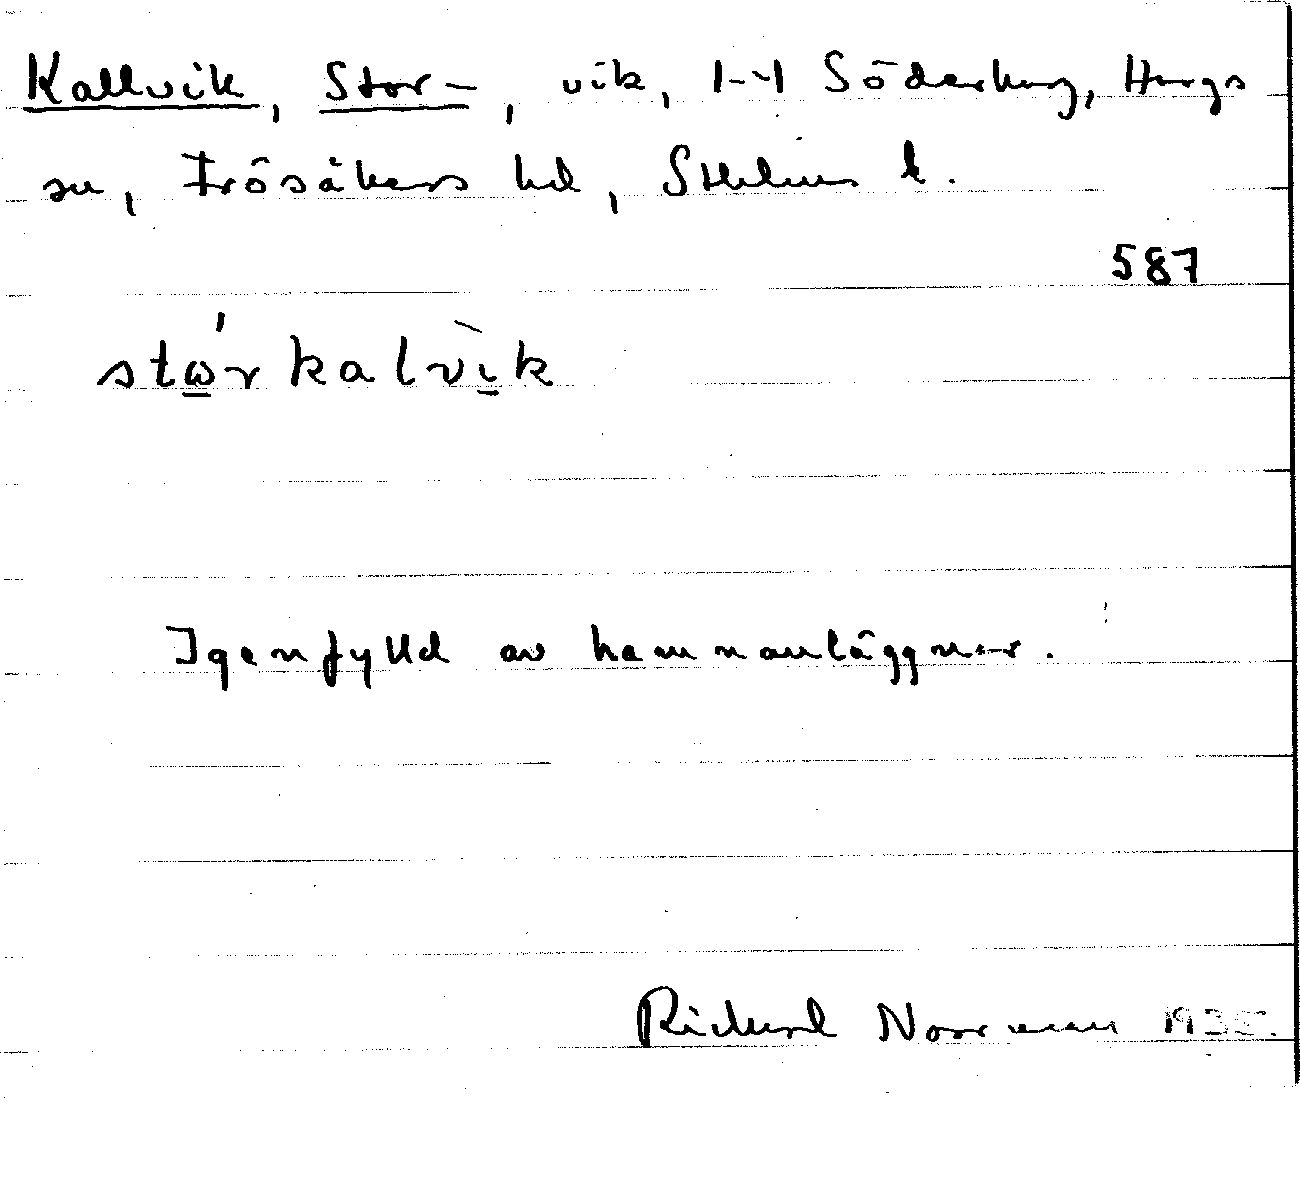 Kallvik, Stor-, vik, 1-4 Söderberg, Hargs
sn, Frösåkers hd, Sthlms l.
587
stώ̲r kalvì̲k
Igenfylld av hamnanläggnar.
Richard Norrman 1935.